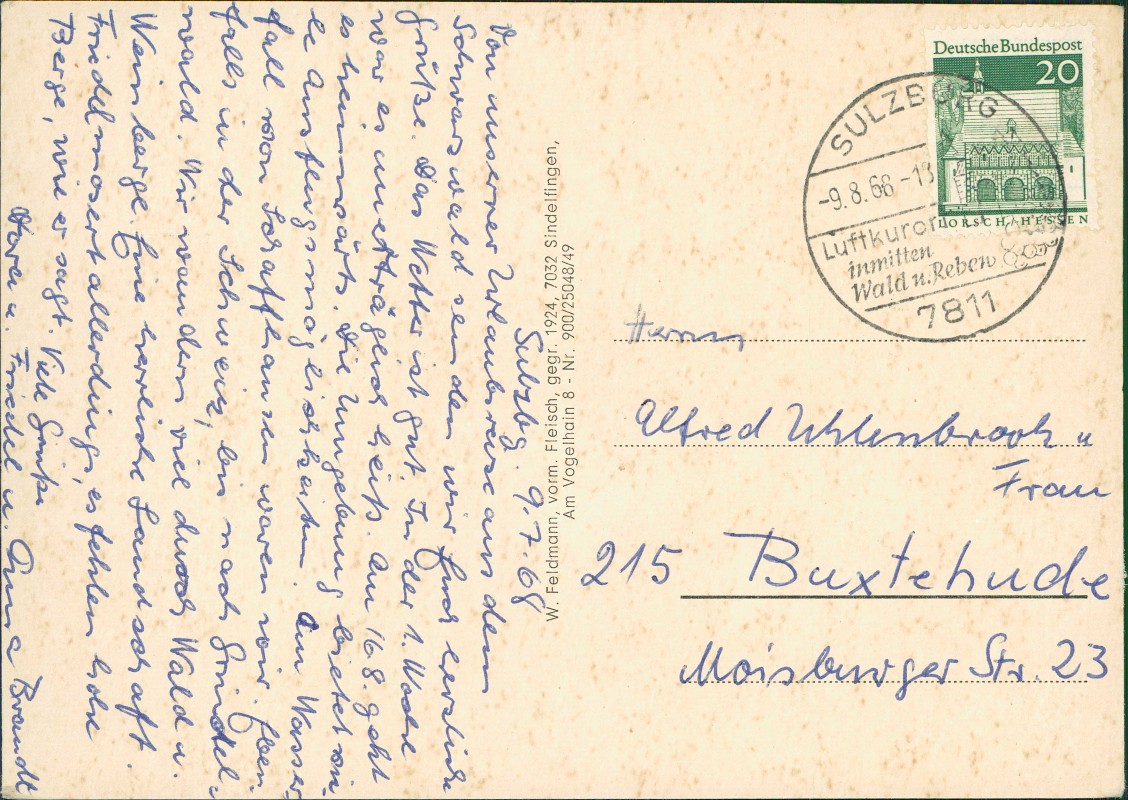 Sulzbg. 9.7.68
Von unserer Urlaubsreise aus dem
Schwarzwald senden wir Euch herzliche
Grüße. Das Wetter ist gut. In der 1. Woche
war es unerträglich heiß. Am 16.8. geht
es heimwärts. Die Umgebung bietet vie
le Ausflugsmöglichkeiten. Am Wasser,
fall von Schaffhausen waren wir, eben
falls in der Schweiz, bis nach Grindel-
wald. Wir wandern viel durch Wald u.
Weinberge. Eine herrliche Landschaft.
Friedel mosert allerdings, es fehlen hohe
Berge, wie er sagt. Viele Grüße
Eure u. Friedel u. Anna Brandt
W. Feldmann, vorm. Fleisch, gegr. 1924, 7032 Sindelfingen,
Am Vogelhain 8 - Nr. 900/25048/49
Deutsche Bundespost
20
LORSCH/HESSEN
SULZBURG
-9.8.68-18
Luftkurort
inmitten
Wald u. Reben
7811
Herrn
Alfred Uhlenbrook u
Frau
215 Buxtehude
Moisburger Str. 23